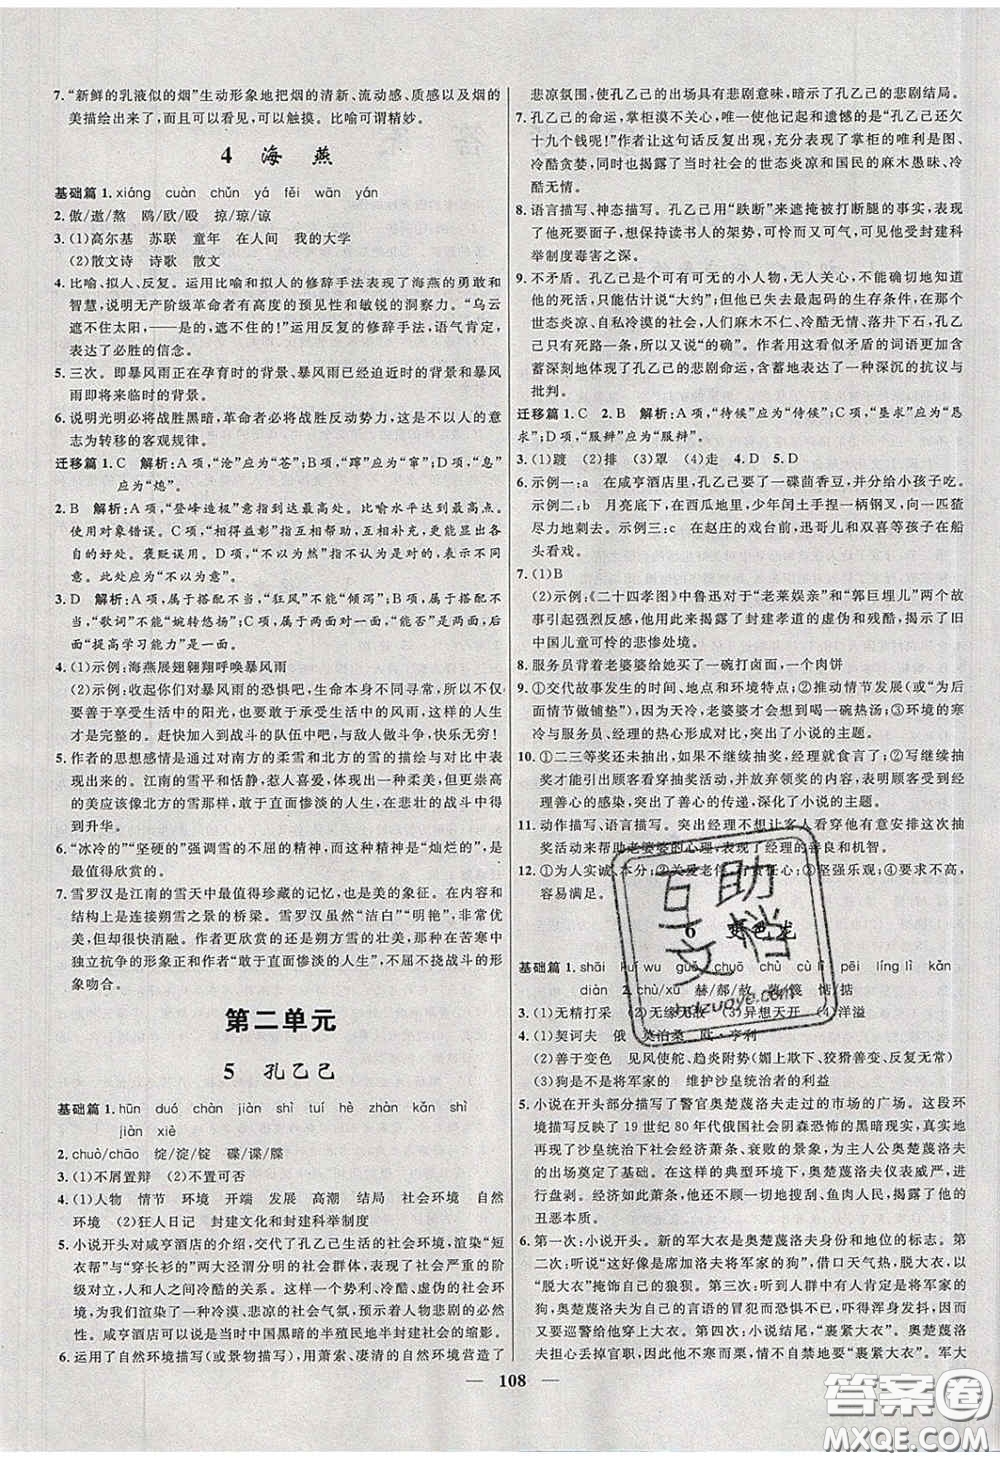 7. “新鲜的乳液似的烟”生动形象地把烟的清新、流动感、质感以及烟的
美描绘出来了,而且可以看见,可以触摸。比喻可谓精妙。
4 海 燕
基础篇 1. xiáng cuàn chǔn yá fěi wān yán
2. 傲/遨/熬 鸥/欧/殴 掠/琼/谅
3. (1)高尔基 苏联 童年 在人间 我的大学
(2)散文诗 诗歌 散文
4. 比喻、拟人、反复。运用比喻和拟人的修辞手法表现了海燕的勇敢和
智慧,说明无产阶级革命者有高度的预见性和敏锐的洞察力。“乌云
遮不住太阳,——是的,遮不住的!”运用反复的修辞手法,语气肯定,
表达了必胜的信念。
5. 三次。即暴风雨正在孕育时的背景、暴风雨已经迫近时的背景和暴风
雨即将来临时的背景。
6. 说明光明必将战胜黑暗,革命者必将战胜反动势力,这是不以人的意
志为转移的客观规律。
迁移篇 1. C 解析:A项,“沧”应为“苍”;B项,“蹿”应为“窜”;D项,“息”
应为“熄”。
2. B 解析:A项,“登峰造极”意为到达最高点。比喻水平达到最高点。
使用对象错误。C项,“相得益彰”指互相帮助,互相补充,更能显示各
自的好处。褒贬误用。D项,“不以为然”指不认为是对的,表示不同
意。此处应为“不以为意”。
3. D 解析:A项,属于搭配不当,“狂风”不能“倾泻”;B项,属于搭配不
当,“歌词”不能“婉转悠扬”;C项,属于两面对一面,“能否”是两面,后
面“提高学习能力”是一面。
4. (1)示例:海燕展翅翱翔呼唤暴风雨
(2)示例:收起你们对暴风雨的恐惧吧,生命本身不同寻常,所以我们不
要善于享受生活中的阳光,也要敢于承受生活中的风雨,这样的人生才
是完整的。赶快加入到战斗的队伍中吧,与敌人做斗争,何其快乐无穷!
5. 作者的思想感情是通过对南方的柔雪和北方的雪的描绘与对比中表
现出来的。江南的雪平和恬静,惹人喜爱,体现出一种柔美,但更崇高
的美应该像北方的雪那样,敢于直面惨淡的人生,在悲壮的战斗中得
到升华。
6. “冰冷的”“坚硬的”强调雪的不屈的精神,而这种精神是“灿烂的”,是
最值得欣赏的。
7. 雪罗汉是江南的雪天中最值得珍藏的记忆,也是美的象征。在内容和
结构上是连接朔雪之景的桥梁。雪罗汉虽然“洁白”“明艳”,非常优
美,非常可爱。作者更欣赏的是朔方雪的壮美,那种在苦寒中
独立抗争的形象正和作者“直面惨淡的人生”,不屈不挠战斗的形象
吻合。
第二单元
5 孔乙己
基础篇 1. hūn duó chàn jiàn shì tuí hè zhàn kǎn shì
jiàn xiè
2. chuò/chāo 绽/淀/锭 碟/谍/牒
3. (1)不屑置辩 (2)不置可否
4. (1)人物 情节 环境 开端 发展 高潮 结局 社会环境 自然
环境 (2)狂人日记 封建文化和封建科举制度
5. 小说开头对咸亨酒店的介绍,交代了孔乙己生活的社会环境,渲染“短
衣帮”与“穿长衫的”两大泾渭分明的社会环境,表现了社会严重的阶
级对立,人和人之间的冷酷关系。这样一个势利、冷酷、虚伪的社会环
境,为我们渲染了一种冷漠、悲凉的社会气氛,预示着人物悲剧的必然
性。咸亨酒店可以说是当时中国黑暗的半殖民地半封建社会的缩影。
6. 运用了自然环境描写(或景物描写),用萧索、凄清的自然环境营造了
悲凉氛围,使孔乙己的出场具有悲剧意味,暗示了孔乙己的悲剧结局。
7. 孔乙己的命运,掌柜漠不关心,唯一惦记和遗憾的是“孔乙己还欠
十九个钱呢!”作者让这句话反复出现,充分表现了掌柜的唯利是图、
冷酷贪婪,同时也揭露了当时社会的世态炎凉和国民的麻木愚昧、冷
酷无情。
8. 语言描写、神态描写。孔乙己用“跌断”来遮掩被打断腿的事实,表现
他死要面子,想保持读书人的架势,可怜而又可气,可见他受封建科
举制度毒害之深。
9. 不矛盾。孔乙己是个可有可无的小人物,无人关心,不能确切地知道
他的死活,只能估计说“大约”。但他已失去最起码的生存条件,在那个
世态炎凉、冷酷冷漠的社会,人们麻木不仁、冷酷无情、落井下石,孔乙
己只有死路一条,所以说“的确”。作者用这看似矛盾的词语更加含
蓄深刻地体现了孔乙己的悲剧命运,含蓄地表达了一种深沉的抗议与
批判。
迁移篇 1. C 2. B 解析:A项,“待候”应为“侍候”;C项,“垦求”应为“恳
求”;D项,“服辫”应为“服辩”。
3. (1)踱 (2)排 (3)罩 (4)走 4. D 5. D
6. 示例一:a 在咸亨酒店里,孔乙己要了一碟茴香豆,并分给小孩子吃。
示例二:b 月亮底下,在西瓜地里,少年闰土手捏一柄钢叉,向一匹猹
尽力地刺去。示例三:c 在赵庄的戏台前,迅哥儿和双喜等孩子在船
头看戏。
7. (1)B
(2)示例:《二十四孝图》中鲁迅对于“老莱娱亲”和“郭巨埋儿”两个故
事引起强烈的反感,形象地揭露了封建孝道的虚伪和残酷,揭示了旧
中国儿童可怜的悲惨处境。
8. 服务员背着老婆婆给她买了一碗打卤面,一个肉饼
9. ①交代故事发生的时间、地点和环境特点;②推动情节发展(或“为后
面情节做铺垫”),因为天冷,老婆婆才会想喝一碗热汤;③环境的寒
冷与服务员、经理的热心形成对比,突出了小说的主题。
10. ①二三等奖还未抽出,如果不继续抽奖,经理就食言了;②写继续抽
奖才能引出顾客帮查抽奖活动,并放弃领奖的内容,表明顾客受到经
理善心的感染,突出了善心的传递,深化了小说的主题。
11. 动作描写、语言描写。突出经理不想让客人看穿他有意安排这次抽
奖活动来帮助老婆婆的心理,表现了经理的善良和机智。
12. ①为人实诚、本分;②关爱老伴,有责任心;③坚强乐观。④要求不高,
容易满足。
6 变色龙
3. (1)无精打采 (2)无缘无故 (3)异想天开 (4)洋溢
4. (1)契诃夫 俄 莫泊桑 欧·亨利
(2)善于变色 见风使舵、趋炎附势(媚上欺下、狡猾善变、反复无常)
(3)狗是不是将军家的 维护沙皇统治者的利益
5. 小说在开头部分描写了警官奥楚蔑洛夫走过的市场的广场。这段环
境描写反映了19世纪80年代俄国社会阴森恐怖的黑暗现实,真实再
现了沙皇统治下社会经济萧条、衰败的景象,为主人公奥楚蔑洛夫的
出场奠定了基础。在这样的典型环境下,奥楚蔑洛夫仪表威严,进行
盘剥。经济如此萧条,他还不顾一切地搜刮、鱼肉人民,表现了他的
丑恶本质。
6. 第一次:小说开头。新的军大衣是奥楚蔑洛夫身份和地位的标志。第
二次:听说“这好像是席加洛夫将军家的狗”,借口天气热,“脱大衣”,
以“脱大衣”掩饰自己的狼狈。第三次:听到人群中有人肯定是将军家
的狗,他为自己的言语的冒犯而恐惧不已,吓得胆战心寒,叫叶尔德
林给他穿上大衣。第四次:小说结尾,“裹紧大衣”。奥楚蔑洛夫
担心丢掉官职,因而狼狈离去,“裹紧大衣”表现了他的丑态。军大
108
互助文档
hdzuoye.com
答案圈
MXQE.COM